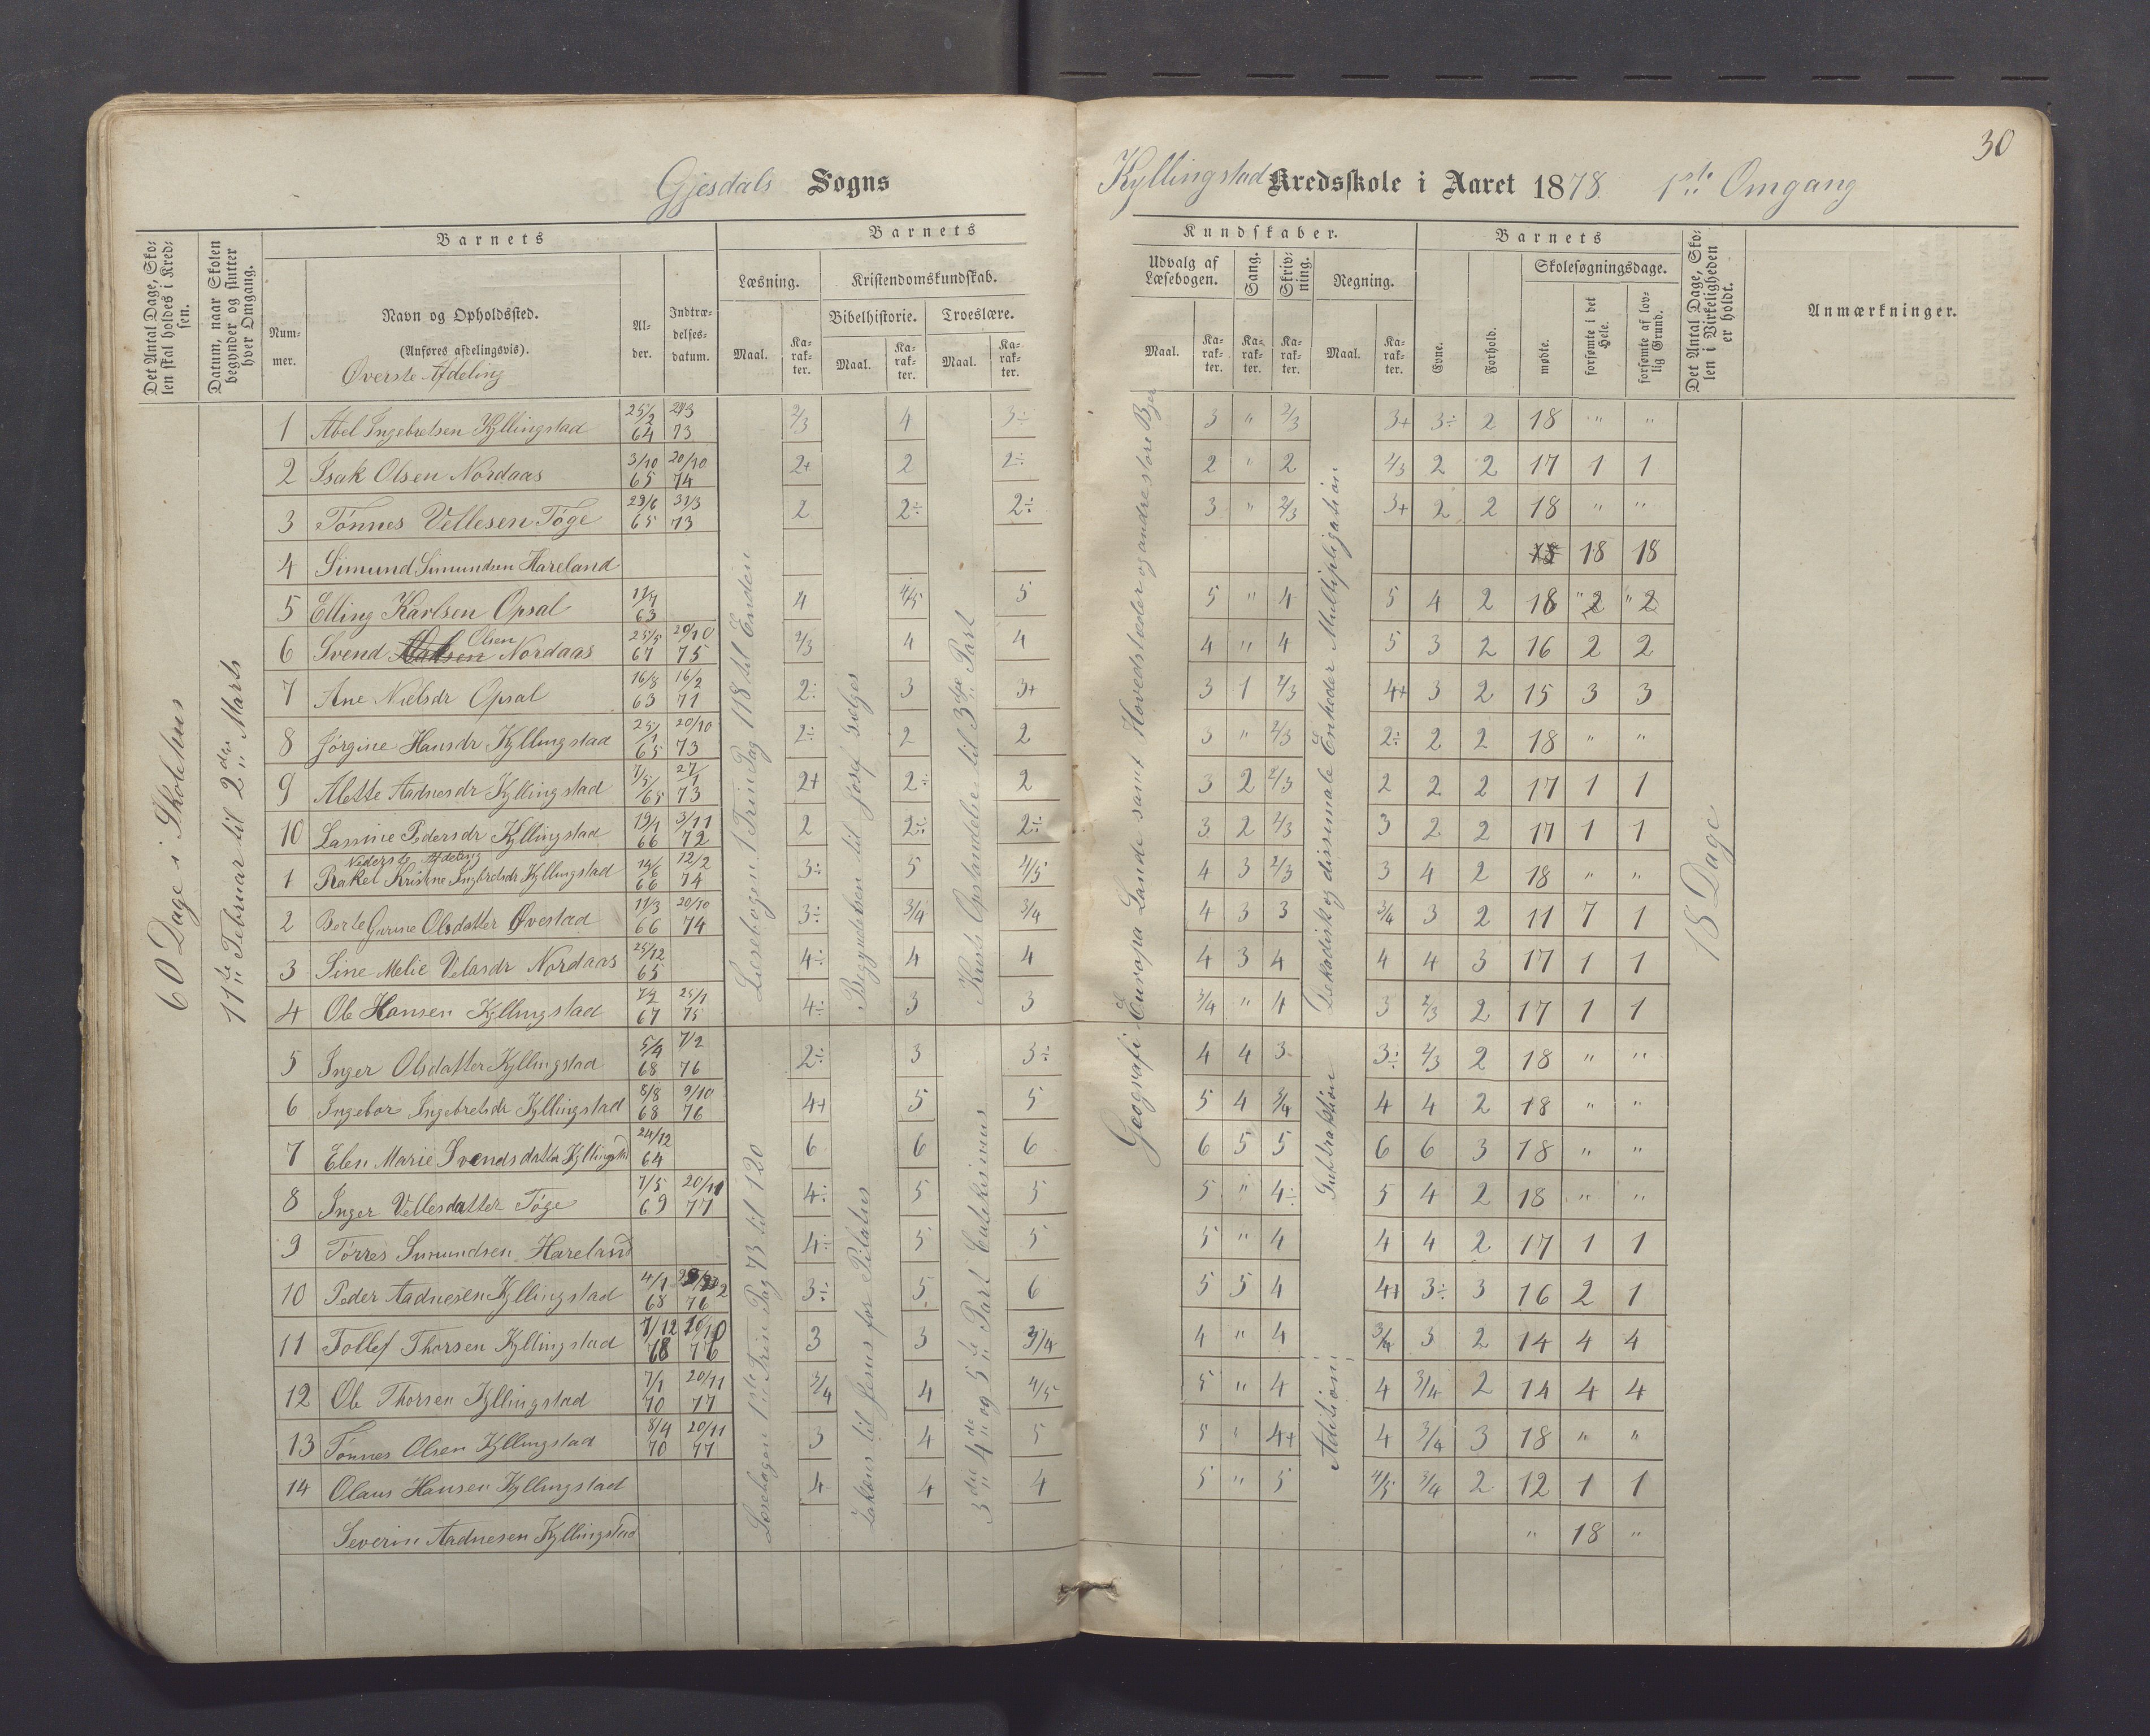 30
Gjesdals Sogns Kyllingstad Kredsskole i Aaret 1878. 1ste Omgang
Det Antal Dage, Skolen skal holdes i Kredsen.
Datum, naar Skolen begynder og slutter hver Omgang.
Barnets
Nummer.
Navn og Opholdssted.
(Anføres afdelingsvis).
Øverste Afdeling
Alder.
Indtrædelsesdatum.
Barnets Kundskaber.
Læsning.
Maal.
Karakter.
Kristendomskundskab.
Bibelhistorie.
Maal.
Karakter.
Troeslære.
Maal.
Karakter.
Udvalg af Læsebogen.
Maal.
Karakter.
Sang.
Karakter.
Skrivning.
Karakter.
Regning.
Maal.
Karakter.
Barnets
Evne.
Forhold.
Skolesøgningsdage.
mødte.
forsømte i det Hele.
forsømte af lovlig Grund.
Det Antal Dage, Skolen i Virkeligheden er holdt.
Anmærkninger.
60 Dage i Skolehus
11te Februar til 2den Marts
Læsebogen 1 Trin Pag 118 til Enden
Læsebogen 1ste Trin Pag 73 til 120
Begyndelsen til Josef sælges
Jakøns til Jesus for Pilatus
Kristi Opstandelse til 3die Part
3die 4de og 5te Part Catekismus
Geografi Europa Lande samt Hovedstæder og andre store Byer
Dekadisk og dissimale Enheder Multipligation
Subtraktion
Adition
18 Dage
1 Abel Ingebretsen Kyllingstad 25/2 64 2/3 73 2/3 4 3÷ 3 " 2/3 3+ 3÷ 2 18 " "
2 Isak Olsen Nordaas 3/10 65 20/10 74 2+ 2 2÷ 2 " 2 2/3 2 2 17 1 1
3 Tønnes Vellesen Tøge 29/6 65 31/3 73 2 2÷ 2÷ 3 " 2/3 3+ 2 2 18 " "
4 Simund Simundsen Hareland 18 18 18
5 Elling Karlsen Opsal 11/7 63 4 4/5 5 5 " 4 5 4 2 18 " 2 " 2
6 Svend Olsen Nordaas 25/5 67 20/10 75 2/3 4 4 4 " 4 5 3 2 16 2 2
7 Ane Nielsdr Opsal 16/8 63 16/2 71 2÷ 3 3+ 3 1 2/3 4+ 3 2 15 3 3
8 Jørgine Hansdr Kyllingstad 25/1 65 20/10 73 2÷ 2 2 3 " 2/3 2÷ 2 2 18 " "
9 Alette Aadnesdr Kyllingstad 7/5 65 27/1 73 2+ 2÷ 2 3 2 2/3 2 2 2 17 1 1
10 Lassine Pedersdr Kyllingstad 19/1 66 3/11 72 2 2÷ 2÷ 3 2 2/3 3 2 2 17 1 1
Nederste Afdeling
1 Rakel Kristine Ingbretsdr Kyllingstad 14/6 66 12/2 74 3÷ 5 4/5 4 3 2/3 3 4 2 18 " "
2 Berte Gurine Olsdatter Øvestad 11/3 66 20/10 74 3÷ 3/4 3/4 4 3 3 3/4 3 2 11 7 1
3 Sine Melie Velasdr Nordaas 25/12 65 4÷ 4 4 4 3 4 4 4 3 17 1 1
4 Ole Hansen Kyllingstad 7/2 67 25/1 75 4÷ 3 3 3/4 " 4 3 2/3 2 17 1 1
5 Inger Olsdatter Kyllingstad 5/4 68 7/2 76 2÷ 3 3÷ 4 4 3 3÷ 2/3 2 18 " "
6 Ingebor Ingebretsdr Kyllingstad 8/8 68 9/10 76 4+ 5 5 5 4 3/4 4 4 2 18 " "
7 Elen Marie Svendsdatter Kyllingstad 24/12 64 6 6 6 6 5 5 6 6 3 18 " "
8 Inger Vellesdatter Tøge 7/5 69 20/11 77 4÷ 5 5 5 " 4÷ 5 4 2 18 " "
9 Tørres Simundsen Hareland 4÷ 5 5 5 " 4 4 4 2 17 1 1
10 Peder Aadnesen Kyllingstad 4/1 68 76 3÷ 5 6 5 5 4 4+ 3÷ 3 16 2 1
11 Tollef Thorsen Kyllingstad 7/12 68 20/10 76 3 3 3/4 4 " 4 3/4 3 2 14 4 4
12 Ole Thorsen Kyllingstad 7/1 70 20/11 77 3/4 4 4/5 5 " 4 4 3/4 2 14 4 4
13 Tønnes Olsen Kyllingstad 8/4 70 20/11 77 3 4 5 5 " 4+ 4 3/4 3 18 " "
14 Olaus Hansen Kyllingstad 4 4 4 5 " 5 4/5 3/4 2 12 1 1
Severin Aadnesen Kyllingstad " 18 "